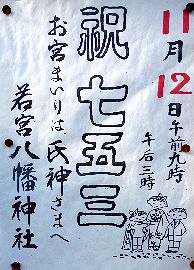 11月12日午前九時
午后三時
祝七五三
お宮まいりは氏神さまへ
若宮八幡神社